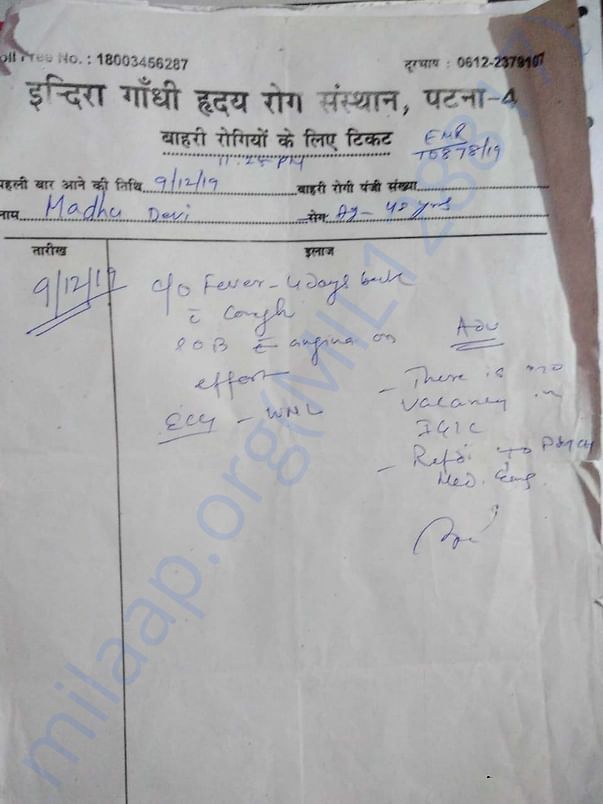 oll Free No. : 18003456287
दूरभाष : 0612-2379107
इन्दिरा गाँधी हृदय रोग संस्थान, पटना-4
बाहरी रोगियों के लिए टिकट
EMR
10878/19
11:25 PM
पहली बार आने की तिथि 9/12/19 बाहरी रोगी पंजी संख्या
नाम Madhu Devi रोग Ag- 42 yrs
तारीख इलाज
9/12/19
c/o Fever - 4 days back
c̄ cough
SOB c̄ angina on
effort
ECG - WNL
Adv
- There is no
vacancy in
IGIC
- Ref. to PMCH
Med. Emg.
milaap.org(MIL128817)